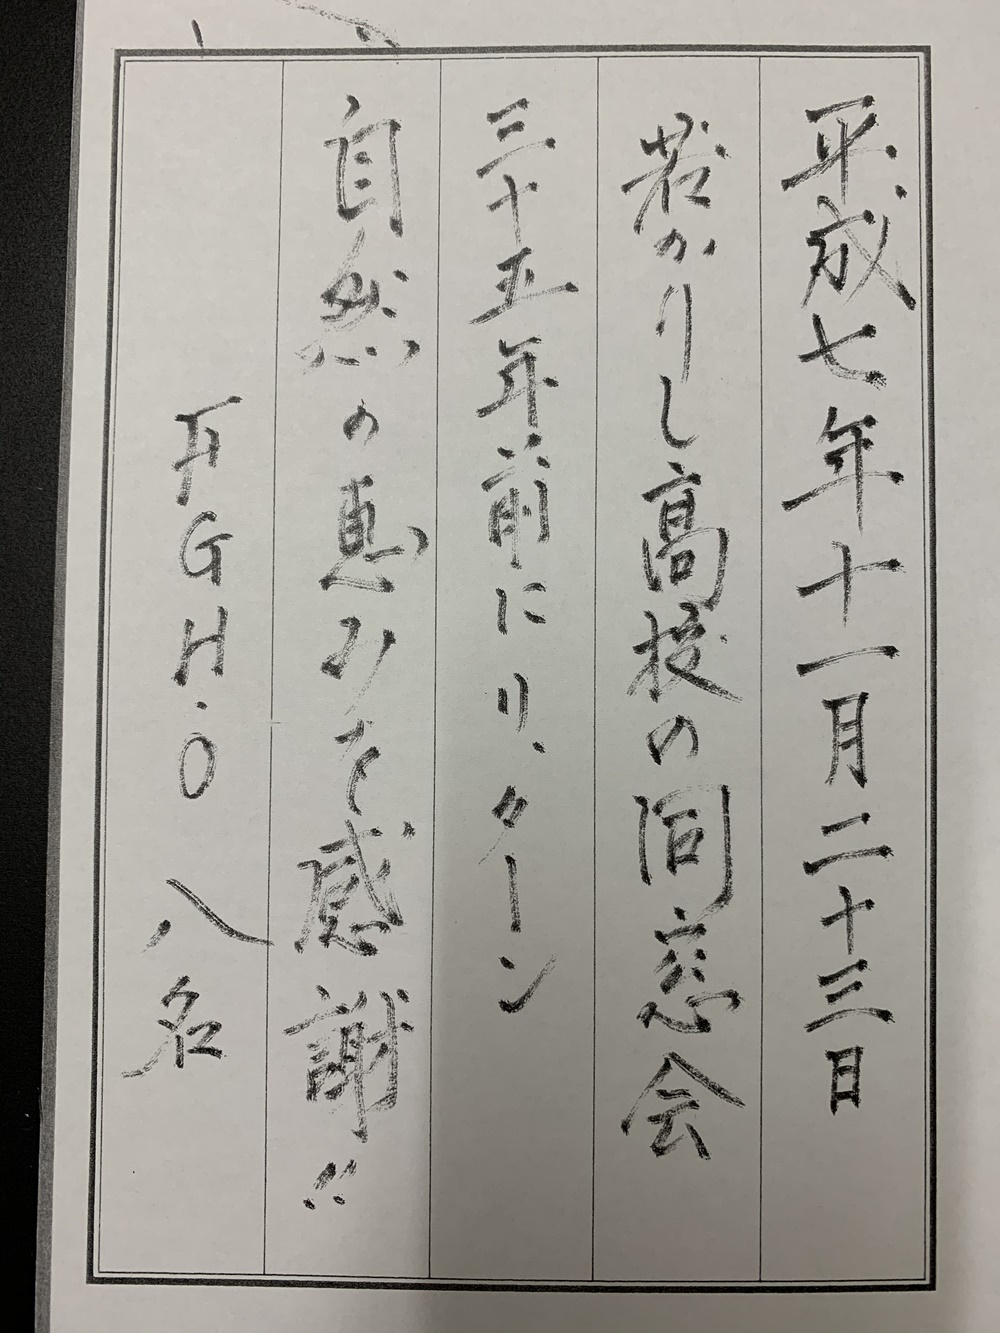 平成七年十一月二十三日
若かりし高校の同窓会
三十五年前にリターン
自然の恵みを感謝!!
FGH.O 八名